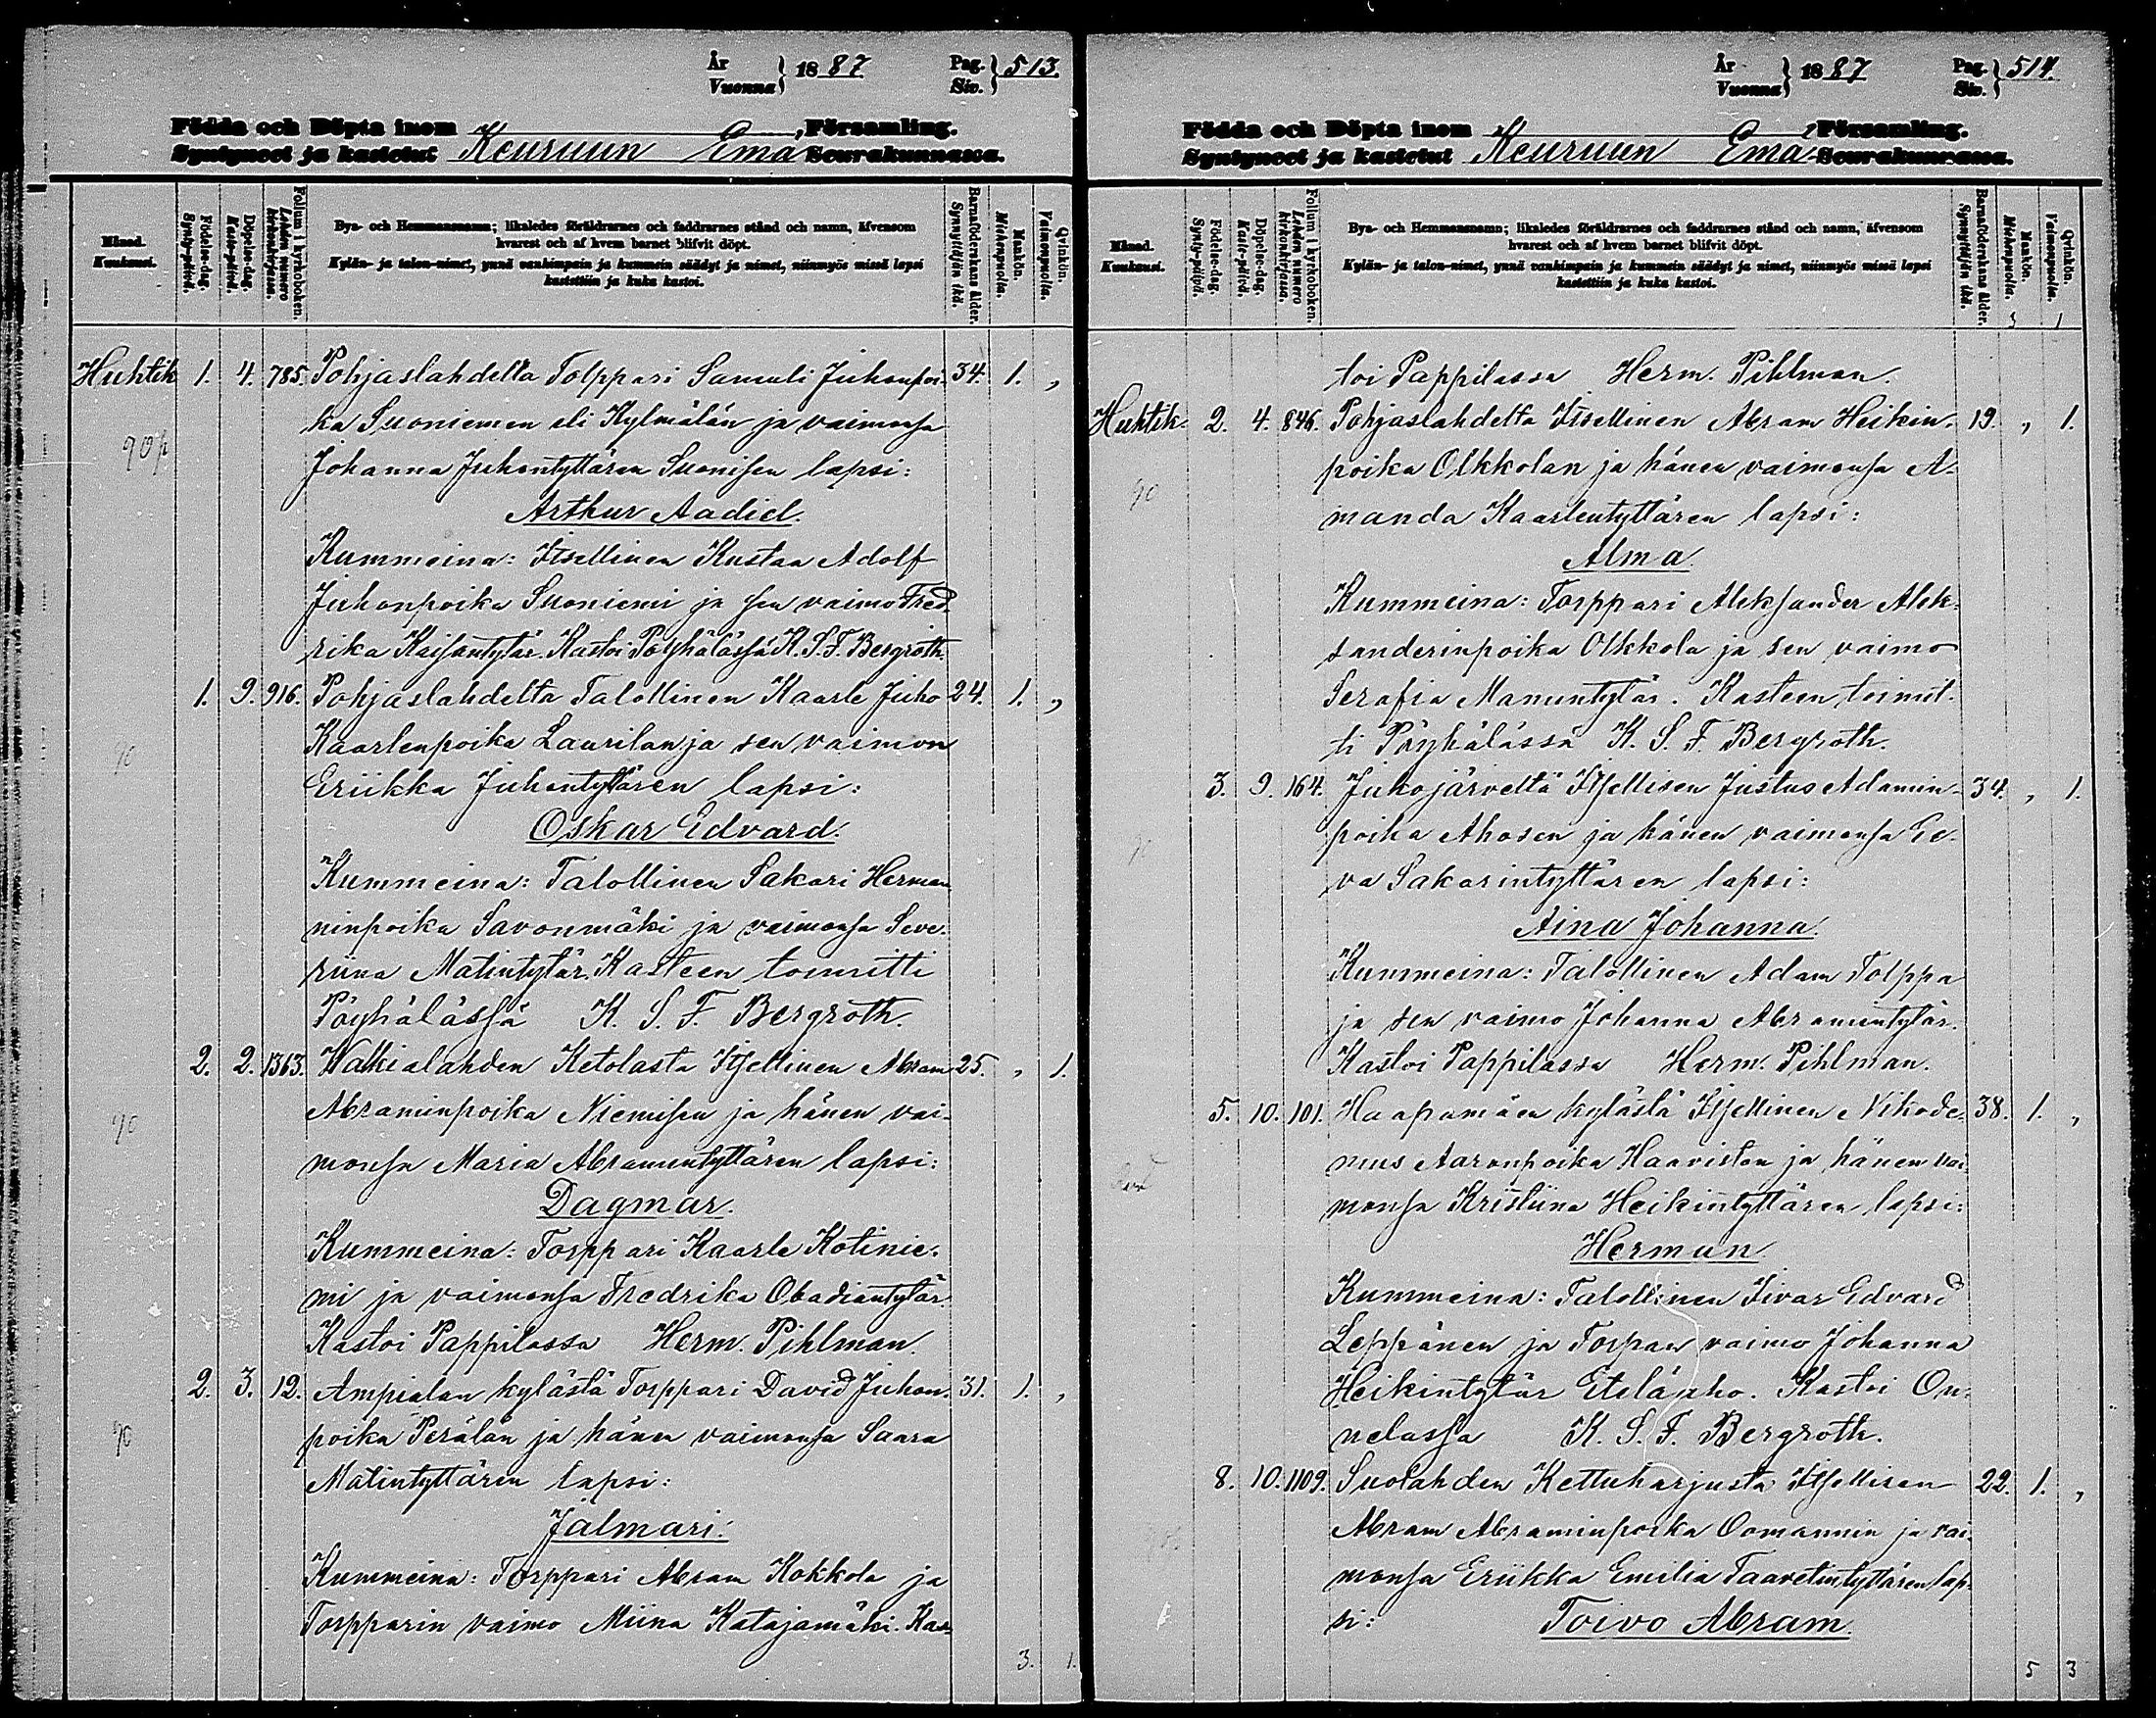 År
Vuonna } 1887.
Pag.
Siv. } 513.
Födda och Döpta inom Församling.
Syntyneet ja kastetut Keuruun Emä Seurakunnassa.
Månad.
Kuukausi.
Födelse-dag.
Synty-päivä.
Döpelse-dag.
Kaste-päivä.
Folium i kyrkoboken.
Lehden numero kirkonkirjassa.
Bya- och Hemmansnamn; likaledes föräldrarnes och faddrarnes stånd och namn, äfvensom
hvarest och af hvem barnet blifvit döpt.
Kylän- ja talon-nimet, ynnä vanhimpain ja kummein säädyt ja nimet, niinmyös missä lapsi
kastettiin ja kuka kastoi.
Barnaföderskans ålder.
Synnyttäjän ikä.
Mankön.
Miehenpuolia.
Qvinkön.
Vaimonpuolia.
Huhtik 1. 4. 785. Pohjaslahdelta Torppari Samuli Juhonpoi- 34. 1. „
ka Suoniemen eli Kylmälän ja vaimonsa
Johanna Juhontyttären Suonisen lapsi:
Arthur Aadiel.
Kummeina: Itsellinen Kustaa Adolf
Juhonpoika Suoniemi ja sen vaimo Fred
rika Kaisantytär. Kastoi Pöyhälässä K. S. F. Bergroth.
1. 9. 916. Pohjaslahdelta Talollinen Kaarle Juho 24. 1. „
90
Kaarlenpoika Laurilan ja sen vaimon
Eriikka Juhontyttären lapsi:
Oskar Edvard.
Kummeina: Talollinen Sakari Herman
ninpoika Savonmäki ja vaimonsa Seve-
riina Matintytär. Kasteen toimitti
Pöyhälässä K. S. F. Bergroth.
2. 2. 1363. Walkialahden Ketolasta Itsellinen Abram 25. „ 1.
90
Abraminpoika Niemisen ja hänen vai-
monsa Maria Abramintyttären lapsi:
Dagmar.
Kummeina: Torppari Kaarle Kotinie-
mi ja vaimonsa Fredrika Obadiantytär.
Kastoi Pappilassa Herm. Pihlman.
2. 3. 12. Ampialan kylästä Torppari David Juhon- 31. 1. „
90
poika Perälän ja hänen vaimonsa Saara
Matintyttären lapsi:
Jalmari.
Kummeina: Torppari Abram Kokkola ja
Torpparin vaimo Miina Katajamäki. Kas-
3. 1.
År
Vuonna } 1887
Pag.
Siv. } 514.
Födda och Döpta inom Församling.
Syntyneet ja kastetut Keuruun Emä Seurakunnassa.
Månad.
Kuukausi.
Födelse-dag.
Synty-päivä.
Döpelse-dag.
Kaste-päivä.
Folium i kyrkoboken.
Lehden numero kirkonkirjassa.
Bya- och Hemmansnamn; likaledes föräldrarnes och faddrarnes stånd och namn, äfvensom
hvarest och af hvem barnet blifvit döpt.
Kylän- ja talon-nimet, ynnä vanhimpain ja kummein säädyt ja nimet, niinmyös missä lapsi
kastettiin ja kuka kastoi.
Barnaföderskans ålder.
Synnyttäjän ikä.
Mankön.
Miehenpuolia.
Qvinkön.
Vaimonpuolia.
3 1
toi Pappilassa Herm. Pihlman.
Huhtik. 2. 4. 846. Pohjaslahdelta Itsellinen Abram Heikin- 19. „ 1.
90
poika Olkkolan ja hänen vaimonsa A-
manda Kaarlentyttären lapsi:
Alma.
Kummeina: Torppari Aleksander Alek-
sanderinpoika Olkkola ja sen vaimo
Serafia Manuntytär. Kasteen toimit-
ti Pöyhälässä K. S. F. Bergroth.
3. 9. 164. Jukojärveltä Itsellisen Justus Adamin- 34. „ 1.
poika Ahosen ja hänen vaimonsa Ee-
va Sakarintyttären lapsi:
Aina Johanna.
Kummeina: Talollinen Adam Tolppa
ja sen vaimo Johanna Abramintytär.
Kastoi Pappilassa Herm. Pihlman.
5. 10. 101. Haapamäen kylästä Itsellinen Nikode- 38. 1. „
mus Aaronpoika Haaviston ja hänen vai
monsa Kristiina Heikintyttären lapsi:
Herman.
Kummeina: Talollinen Iivar Edvard
Leppänen ja Torpan vaimo Johanna
Heikintytär Eteläaho. Kastoi On-
nelassa K. S. F. Bergroth.
8. 10. 1109. Suolahden Kettuharjusta Itsellisen 22. 1. „
Abram Abraminpoika Oomannin ja vai-
monsa Eriikka Emilia Taavetintyttären lap-
si: Toivo Abram.
5 3